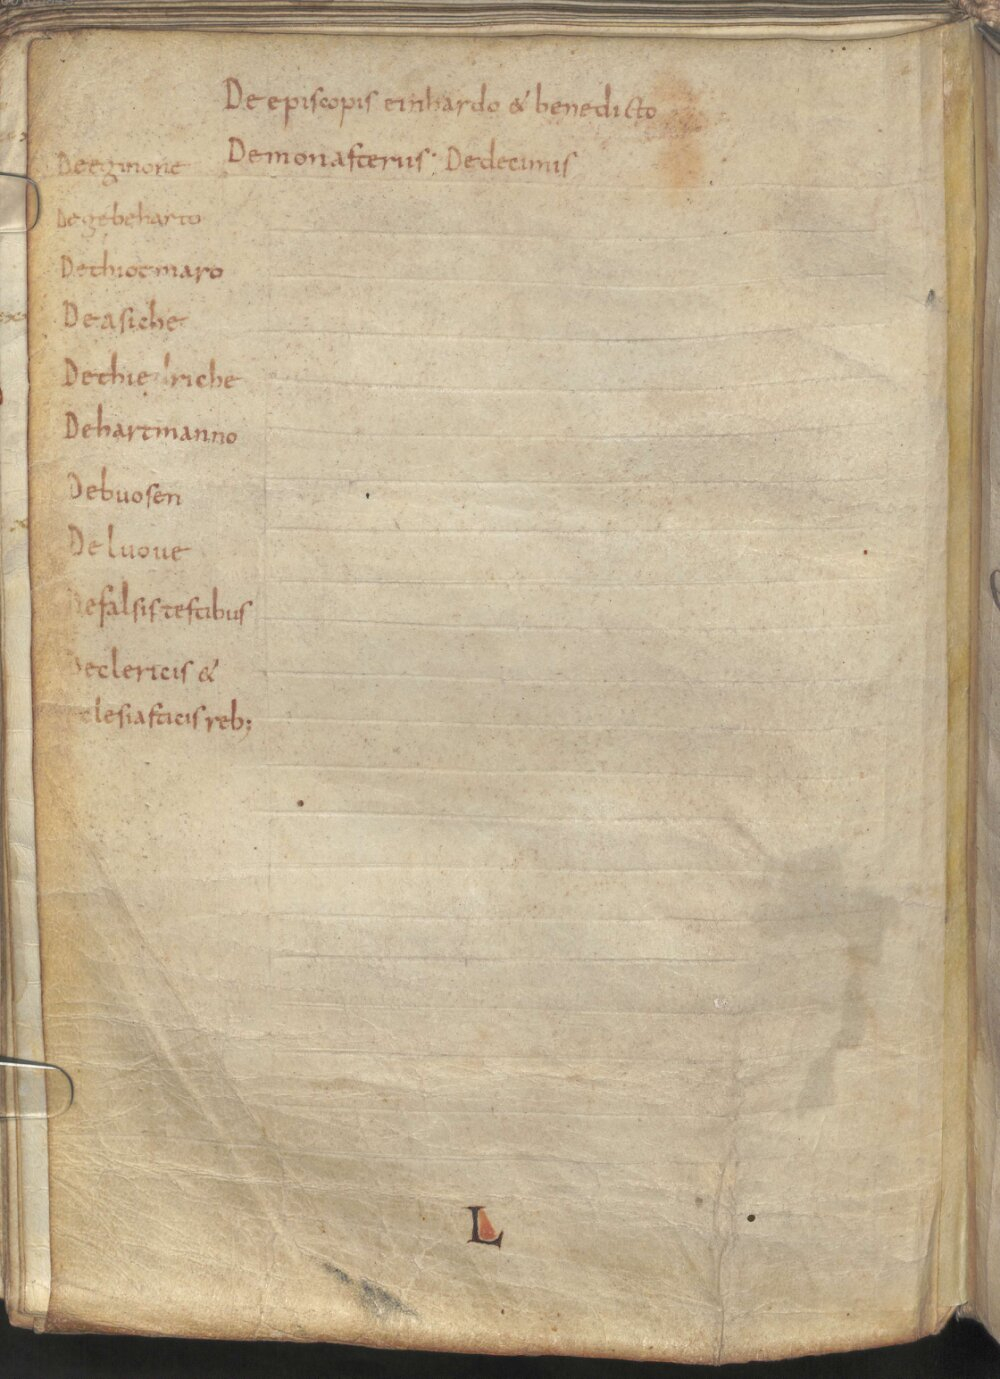 De episcopis einhardo & benedicto
De monasteriis; De decimis
De eginone
De gebeharto
De thiotmaro
De asiche
De thie riche
De hartmanno
De buosen
De luoue
De falsis testibus
De clericis &
clesiasticis reb;
L